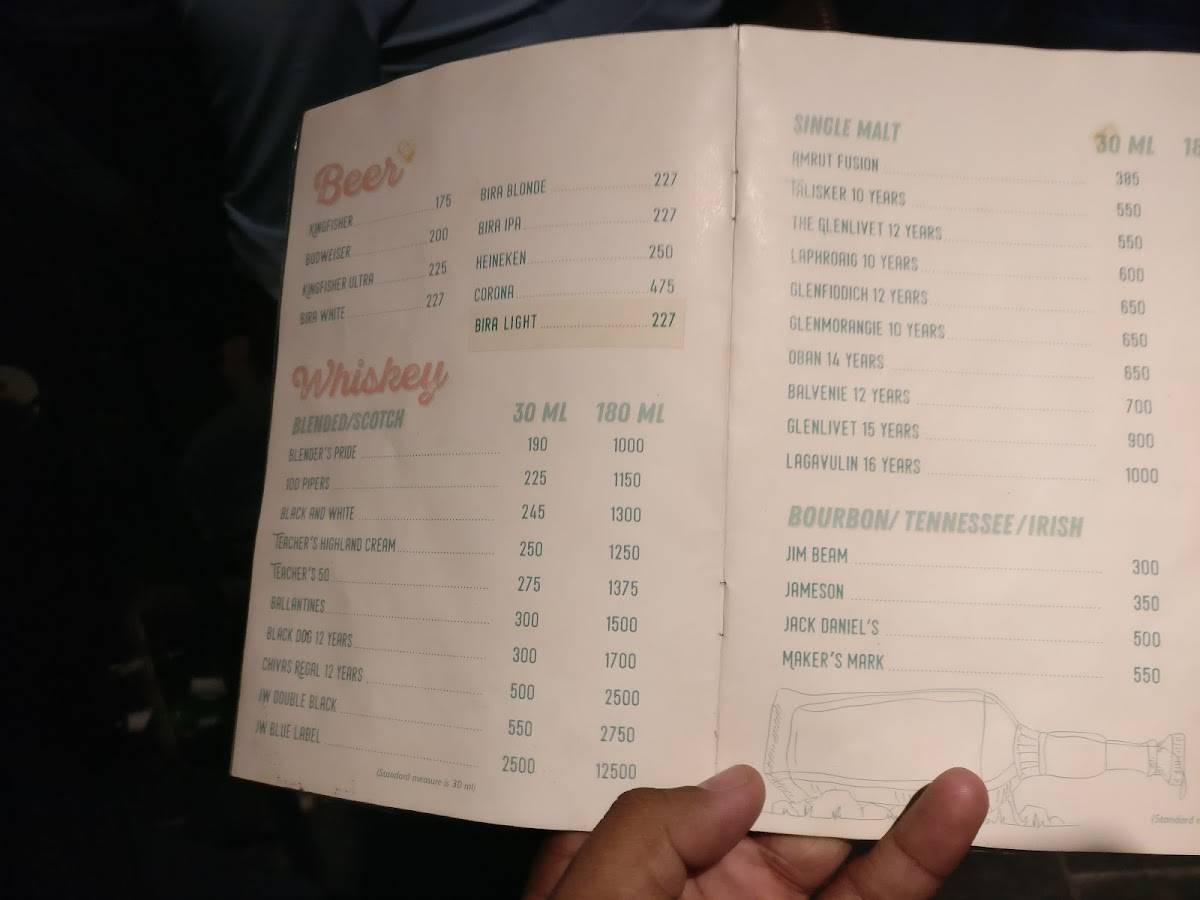 Beer
KINGFISHER 175
BUDWEISER 200
KINGFISHER ULTRA 225
BIRA WHITE 227
BIRA BLONDE 227
BIRA IPA 227
HEINEKEN 250
CORONA 475
BIRA LIGHT 227
Whiskey
BLENDED/SCOTCH 30 ML 180 ML
BLENDER'S PRIDE 190 1000
100 PIPERS 225 1150
BLACK AND WHITE 245 1300
TEACHER'S HIGHLAND CREAM 250 1250
TEACHER'S 50 275 1375
BALLANTINES 300 1500
BLACK DOG 12 YEARS 300 1700
CHIVAS REGAL 12 YEARS 500 2500
JW DOUBLE BLACK 550 2750
JW BLUE LABEL 2500 12500
(Standard measure is 30 ml)
SINGLE MALT 30 ML 18
AMRUT FUSION 385
TALISKER 10 YEARS 550
THE GLENLIVET 12 YEARS 550
LAPHROAIG 10 YEARS 600
GLENFIDDICH 12 YEARS 650
GLENMORANGIE 10 YEARS 650
OBAN 14 YEARS 650
BALVENIE 12 YEARS 700
GLENLIVET 15 YEARS 900
LAGAVULIN 16 YEARS 1000
BOURBON/ TENNESSEE/IRISH
JIM BEAM 300
JAMESON 350
JACK DANIEL'S 500
MAKER'S MARK 550
(Standard